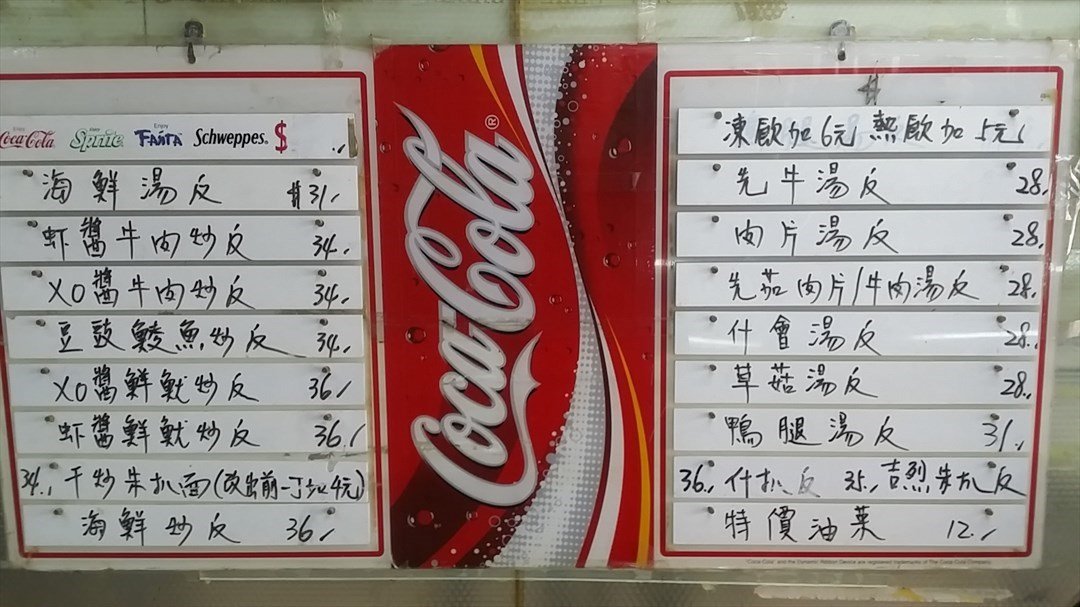 Enjoy Coca-Cola Sprite Enjoy Fanta Schweppes® $
海鮮湯反 $31/
虾醬牛肉炒反 34/
XO醬牛肉炒反 34/
豆豉鯪魚炒反 34/
XO醬鮮魷炒反 36/
虾醬鮮魷炒反 36/
34/ 干炒朱扒面(改出前一丁加4元)
海鮮炒反 36/
Coca-Cola®
凍飲加6元 熱飲加5元/
先牛湯反 28/
肉片湯反 28/
先茄肉片/牛肉湯反 28/
什會湯反 28/
草菇湯反 28/
鴨腿湯反 31/
36/ 什扒反 35/ 吉烈朱扒反
特價油菜 12/
"Coca-Cola" and the Dynamic Ribbon Device are registered trademarks of The Coca-Cola Company.